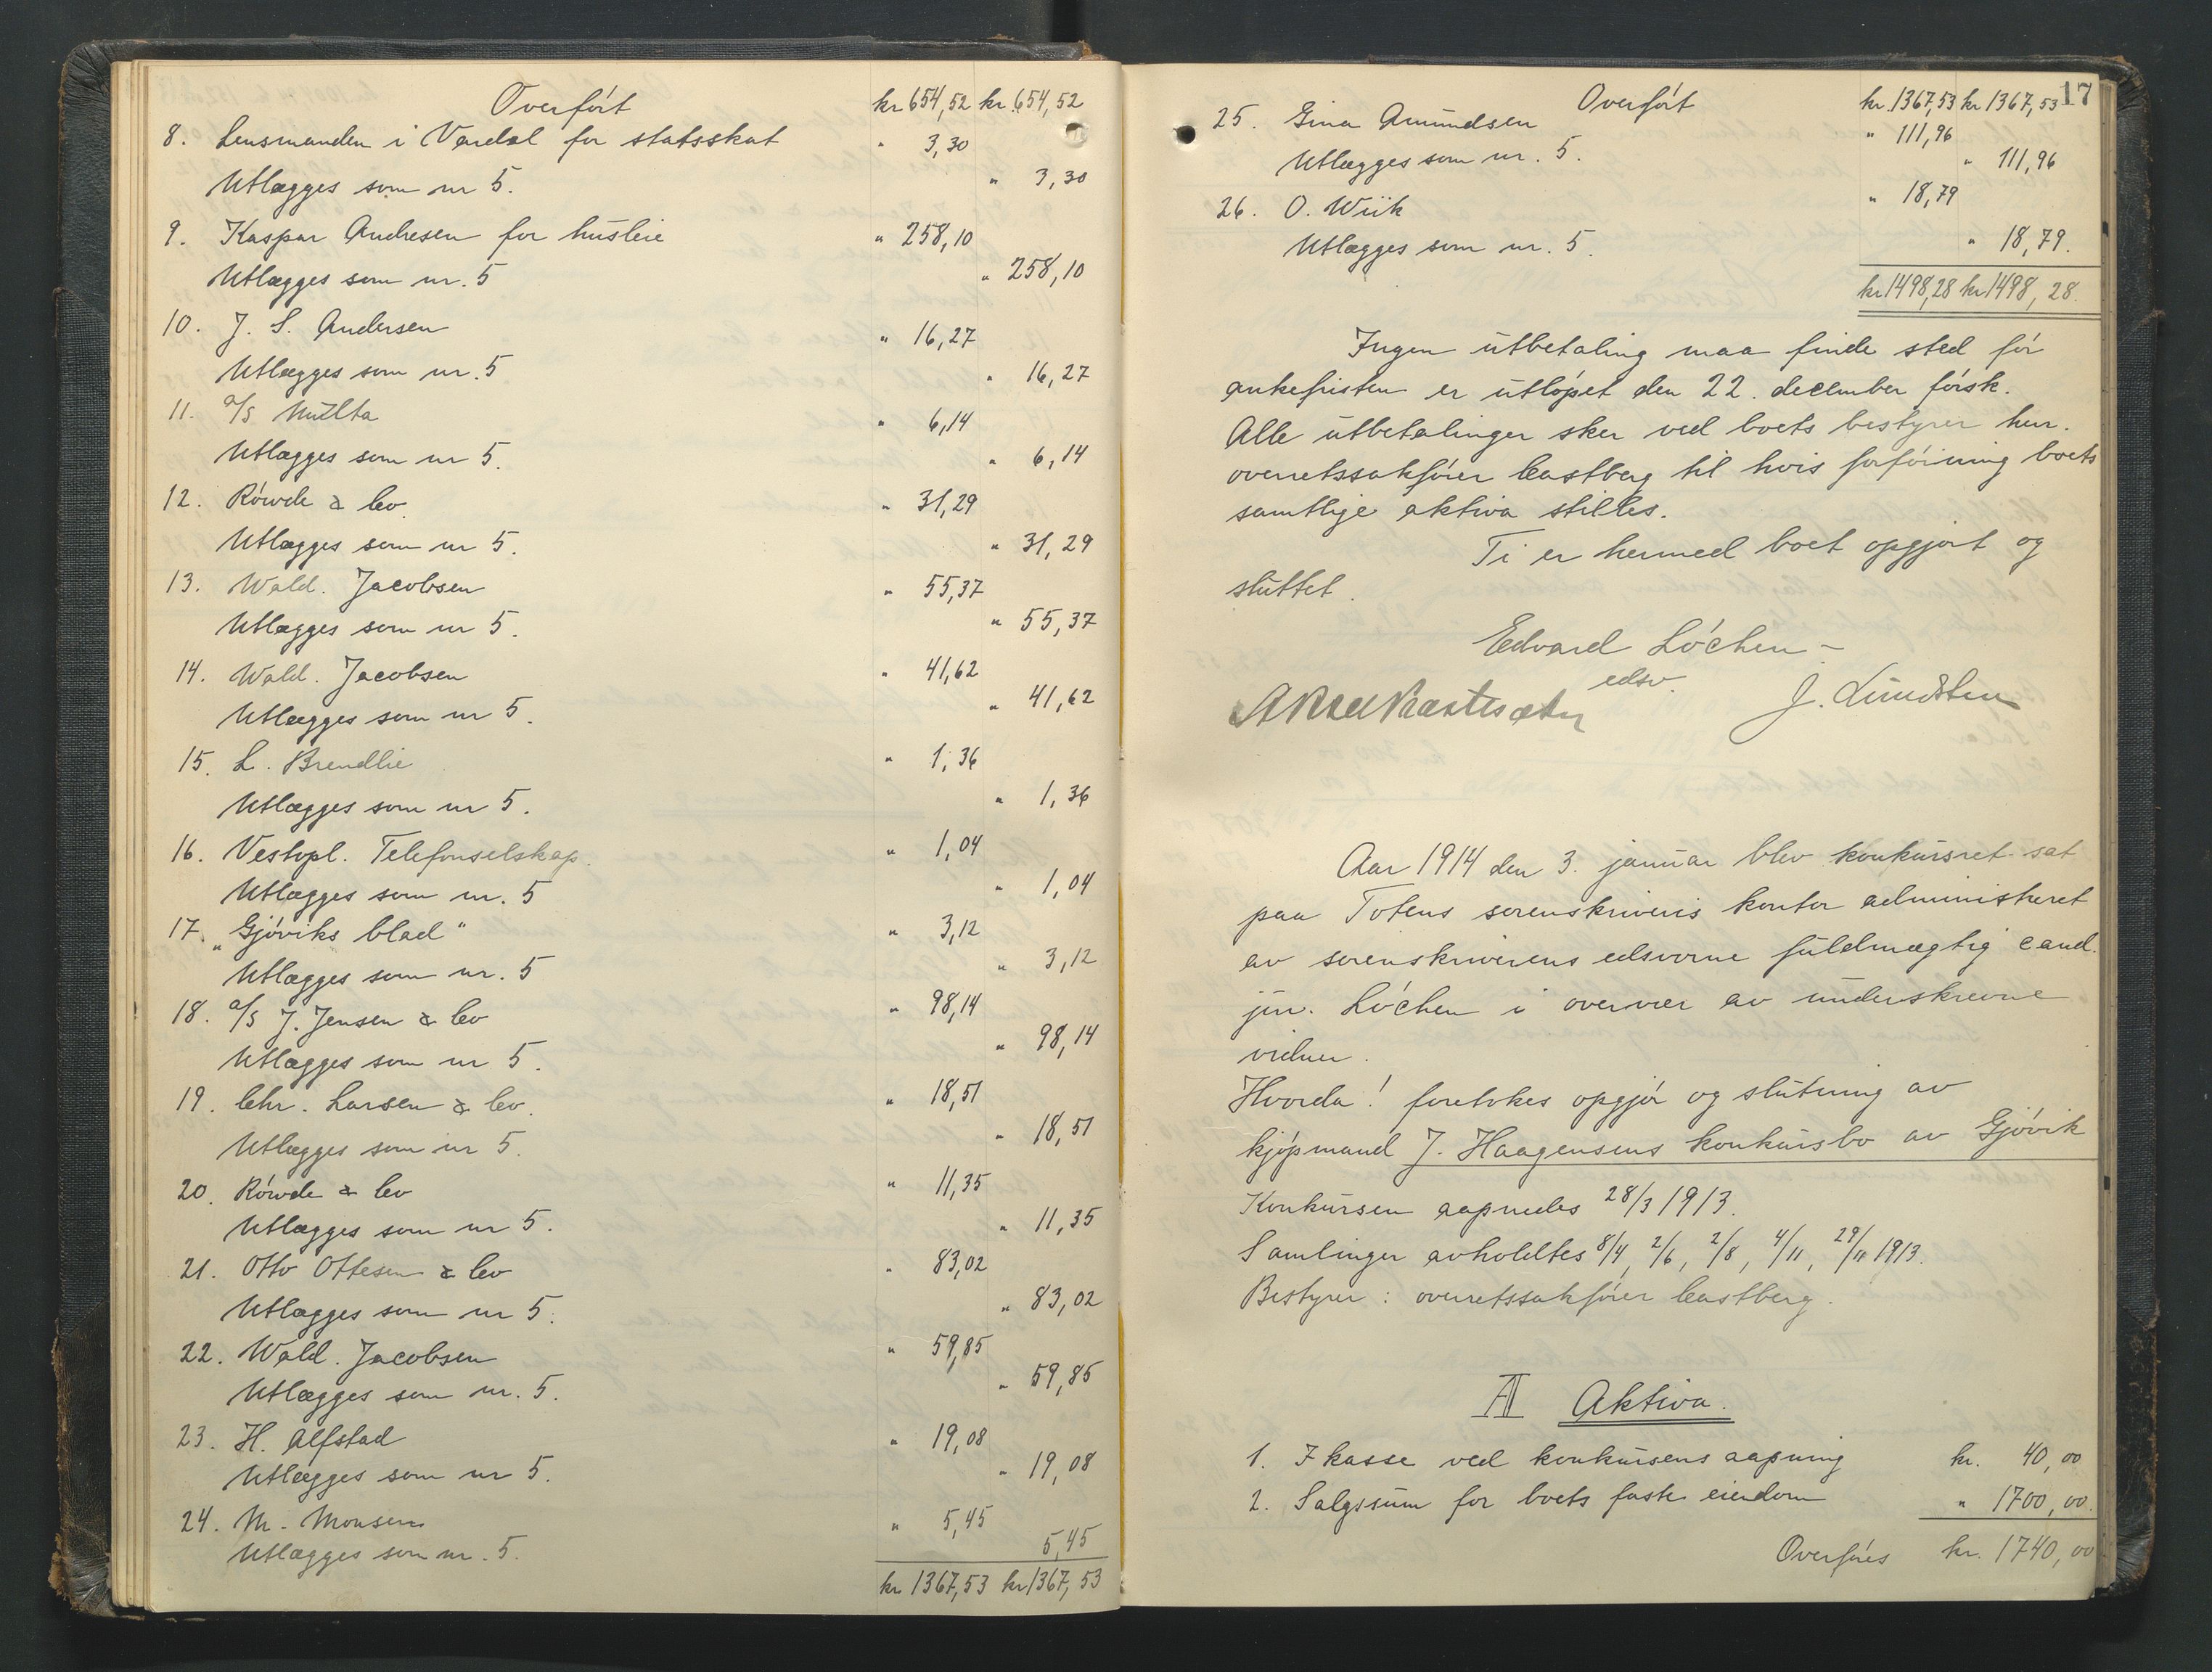 Overført kr 654,52 kr 654,52
8. Lensmanden i Vardal for statsskat " 3,30
Utlægges som nr 5. " 3,30
9. Kaspar Andresen for husleie " 258,10
Utlægges som nr. 5 " 258,10
10. J. S. Andersen " 16,27
Utlægges som nr. 5 " 16,27
11. a/s Mulla " 6,14
Utlægges som nr 5. " 6,14
12. Røwde & Co. " 31,29
Utlægges som nr 5. " 31,29
13. Wald. Jacobsen " 55,37
Utlægges som nr 5. " 55,37
14. Wald. Jacobsen " 41,62
Utlægges som nr 5. " 41,62
15. L. Brendlie " 1,36
Utlægges som nr 5. " 1,36
16. Vestopl. Telefonselskap. " 1,04
Utlægges som nr. 5 " 1,04
17. „Gjøviks blad" " 3,12
Utlægges som nr. 5 " 3,12
18. a/s J. Jensen & Co " 98,14
Utlægges som nr 5. " 98,14
19. Chr. Larsen & Co. " 18,51
Utlægges som nr 5. " 18,51
20. Røwde & Co " 11,35
Utlægges som nr 5. " 11,35
21. Otto Ottesen & Co " 83,02
Utlægges som nr 5. " 83,02
22. Wald. Jacobsen " 59,85
Utlægges som nr. 5. " 59,85
23. H. Alfstad " 19,08
Utlægges som nr 5. " 19,08
24. M. Monsen " 5,45
Utlægges som nr. 5. 5,45
kr 1367,53 kr 1367,53
17
Overført kr. 1367,53 kr 1367,53
25. Gina Amundsen " 111,96
Utlægges som nr. 5. " 111,96
26. O. Wiik " 18,79
Utlægges som nr. 5. " 18,79.
kr 1498,28 kr 1498,28.
Ingen utbetaling maa finde sted før
ankefristen er utløpet den 22. december førsk.
Alle utbetalinger sker ved boets bestyrer herr.
overretssakfører Castberg til hvis forføining boets
samtlige aktiva stilles.
Ti er hermed boet opgjort og
sluttet.
Edvard Løchen
edsv.
J. Lundsten
Aar 1914 den 3. januar blev konkursret sat
paa Totens sorenskriveris kontor administreret
av sorenskriverens edsvorne fuldmægtig cand.
jur. Løchen i overvær av underskrevne
vidner.
Hvorda! foretokes opgjør og slutning av
kjøpmand J. Haagensens konkursbo av Gjøvik
Konkursen aapnedes 28/3 1913.
Samlinger avholdtes 8/4, 2/6, 2/8, 4/11, 29/11 1913.
Bestyrer: overretssakfører Castberg.
A Aktiva.
1. I kasse ved konkursens aapning kr. 40,00
2. Salgssum for boets faste eiendom " 1700,00.
Overføres kr. 1740,00